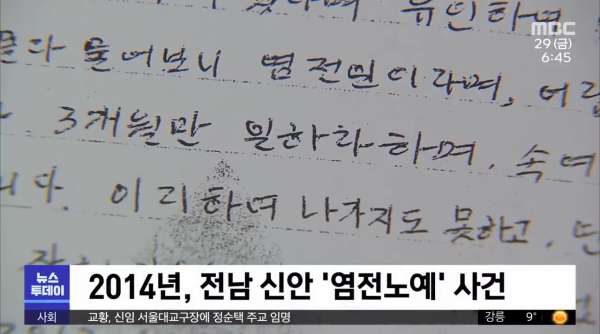 다며 유인하며
MBC
29(금)
6:45
물다 물어보니 염전일이라며, 어립
3개월만 일하라하며. 속여
니다. 이리하며 나가지도 못하고, 단
뉴스
투데이
2014년, 전남 신안 '염전노예' 사건
사회
교황, 신임 서울대교구장에 정순택 주교 임명
강릉 9°